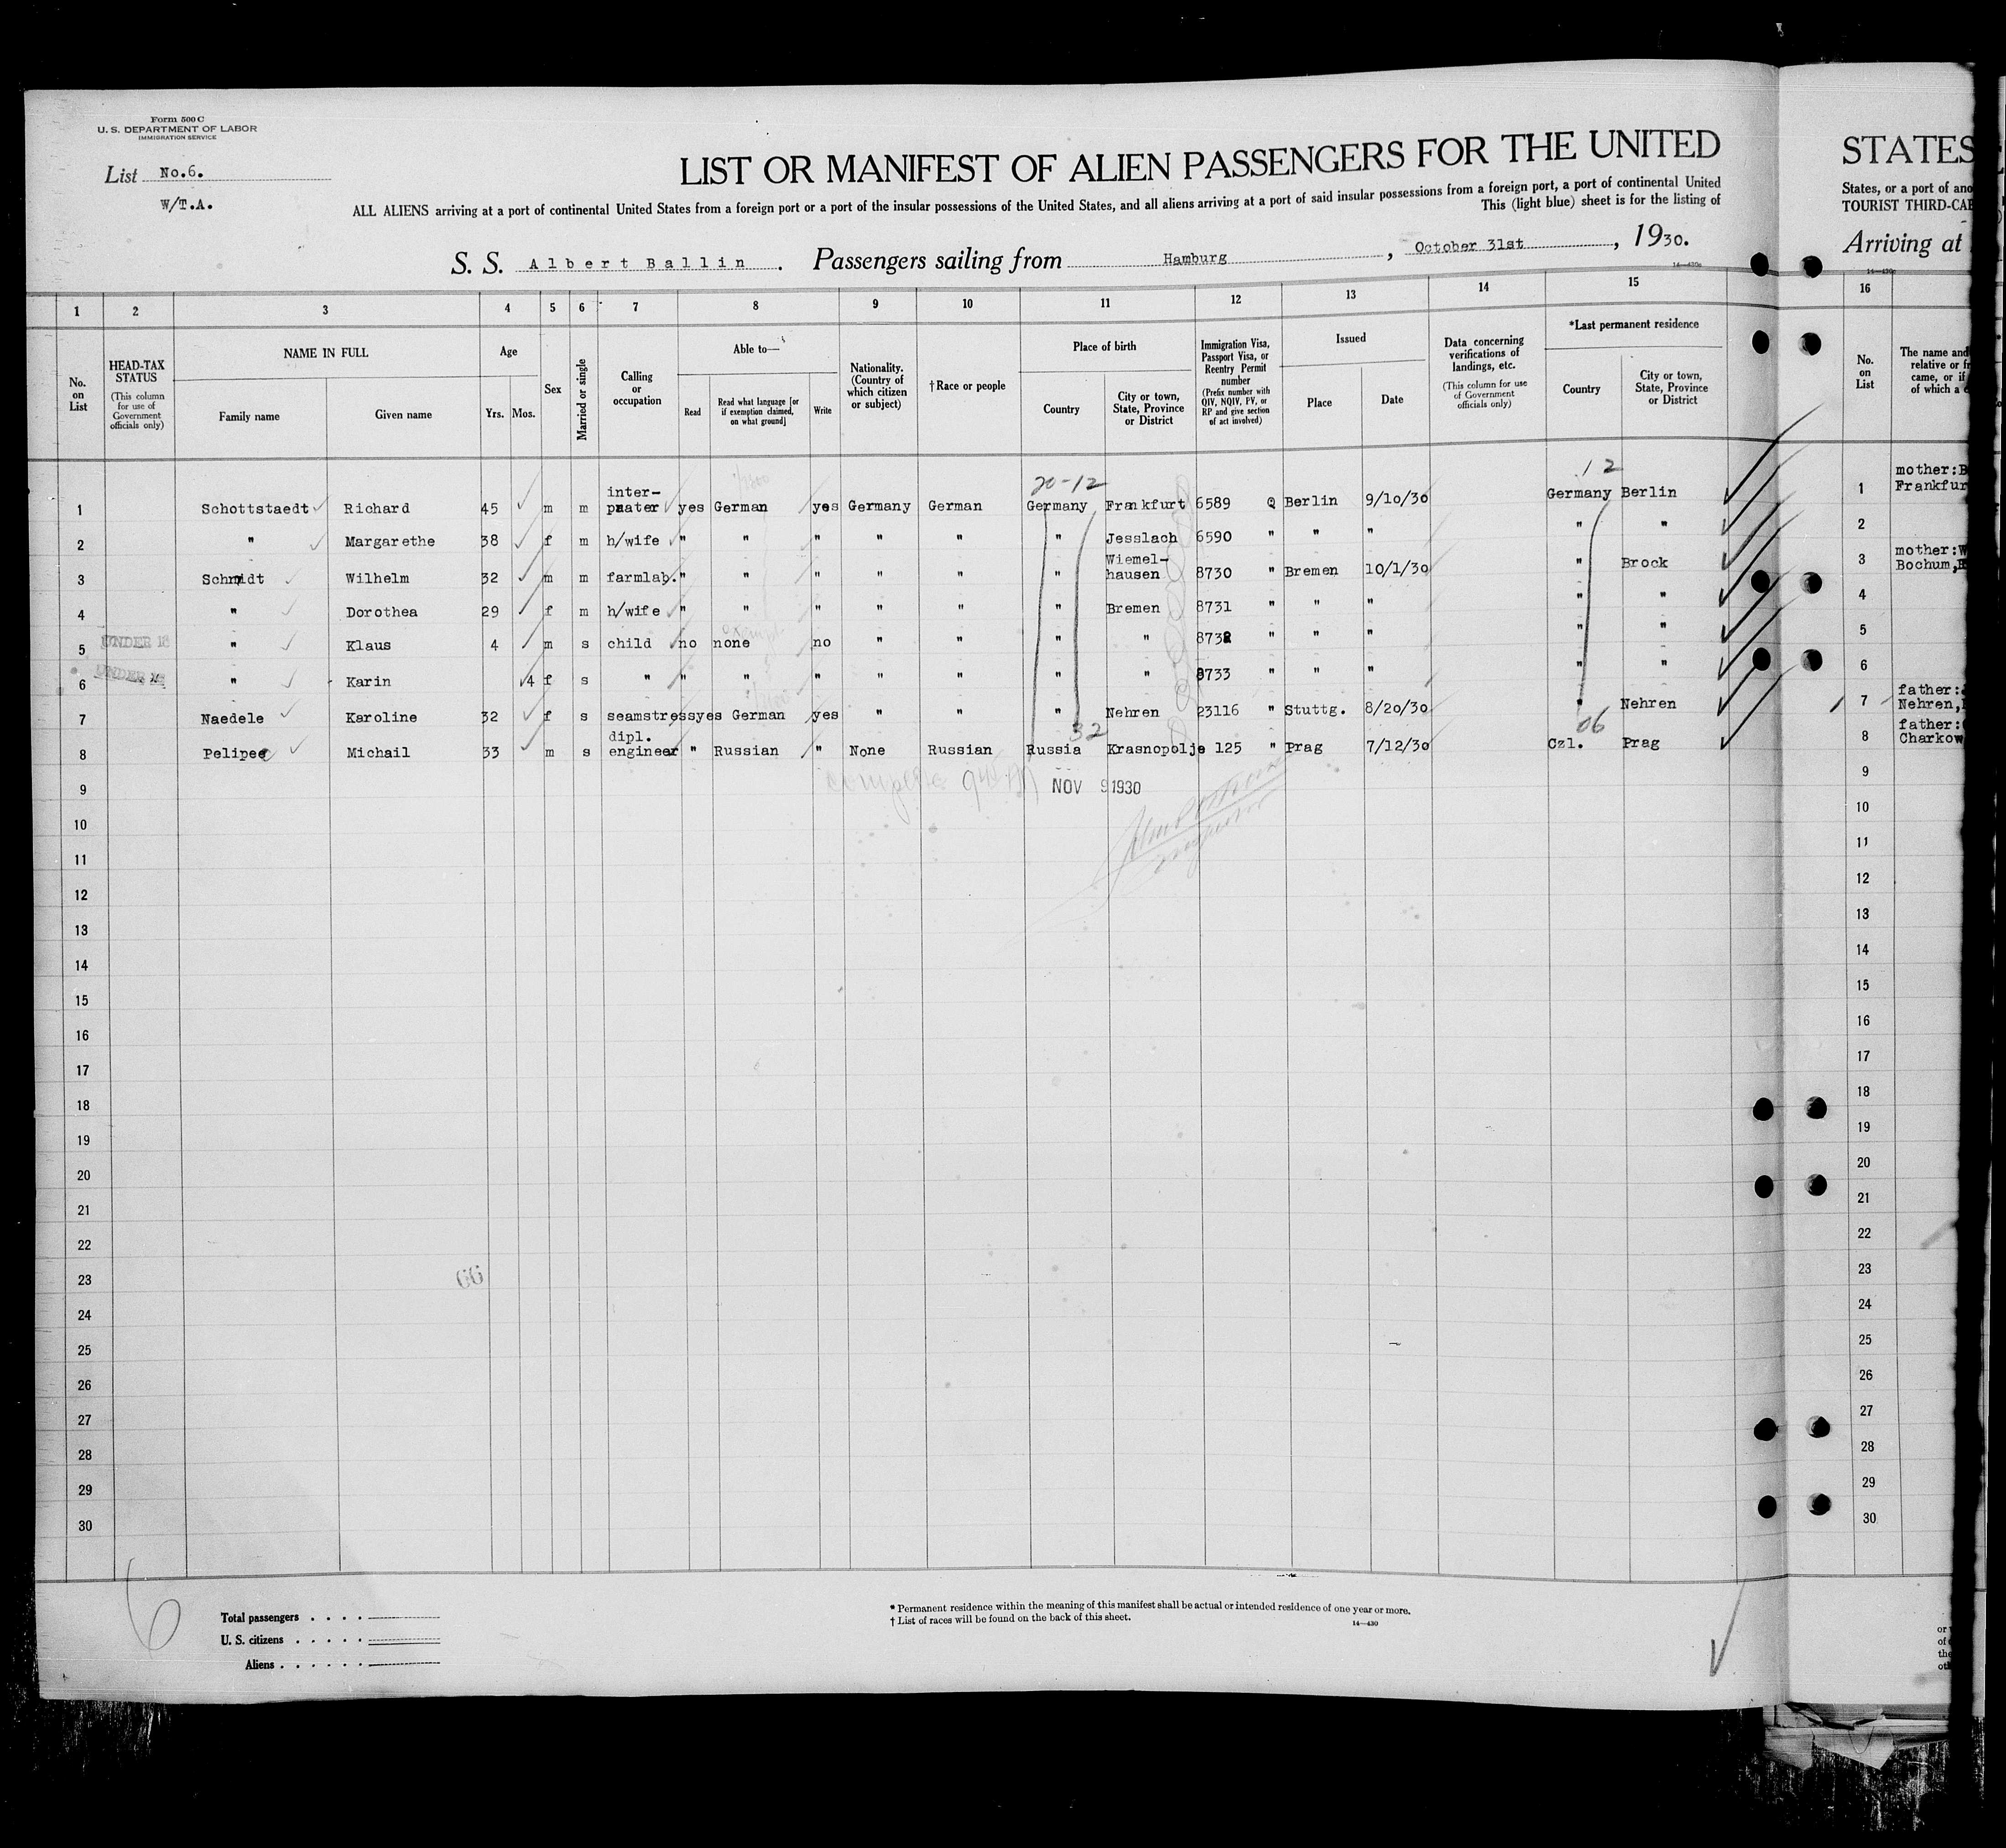 Form 500 C
U. S. DEPARTMENT OF LABOR
IMMIGRATION SERVICE
List No.6.
W/T.A.
LIST OR MANIFEST OF ALIEN PASSENGERS FOR THE UNITED
ALL ALIENS arriving at a port of continental United States from a foreign port or a port of the insular possessions of the United States, and all aliens arriving at a port of said insular possessions from a foreign port, a port of continental United
This (light blue) sheet is for the listing of
S. S. Albert Ballin . Passengers sailing from Hamburg , October 31st , 1930.
14—430
1 2 3 4 5 6 7 8 9 10 11 12 13 14 15
No. on List
HEAD-TAX STATUS (This column for use of Government officials only)
NAME IN FULL
Family name Given name
Age
Yrs. Mos.
Sex
Married or single
Calling or occupation
Able to—
Read
Read what language [or if exemption claimed, on what ground]
Write
Nationality. (Country of which citizen or subject)
†Race or people
Place of birth
Country
City or town, State, Province or District
Immigration Visa, Passport Visa, or Reentry Permit number (Prefix number with QIV, NQIV, PV, or RP and give section of act involved)
Issued
Place Date
Data concerning verifications of landings, etc. (This column for use of Government officials only)
*Last permanent residence
Country
City or town, State, Province or District
20-12 12
1 Schottstaedt Richard 45 m m inter- yes German yes Germany German Germany Frankfurt 6589 Q Berlin 9/10/30 Germany Berlin
2 " Margarethe 38 f m h/wife " " " " " " Jesslach 6590 " " " " "
3 Schmidt Wilhelm 32 m m farmlab. " " " " " " Wiemel-hausen 8730 " Bremen 10/1/30 " Brock
4 " Dorothea 29 f m h/wife " " " " " " Bremen 8731 " " " " "
UNDER 16
5 " Klaus 4 m s child no none no " " " " 8732 " " " " "
UNDER 16
6 " Karin 4 f s " " " " " " " " 8733 " " " " "
7 Naedele Karoline 32 f s seamstress yes German yes " " " Nehren 23116 " Stuttg. 8/20/30 " Nehren
32 06
8 Pelipec Michail 33 m s dipl. engineer " Russian " None Russian Russia Krasnopolje 125 " Prag 7/12/30 Czl. Prag
9 NOV 9 1930
10
11
12
13
14
15
16
17
18
19
20
21
22
23
66
24
25
26
27
28
29
30
6
Total passengers
U. S. citizens
Aliens
* Permanent residence within the meaning of this manifest shall be actual or intended residence of one year or more.
† List of races will be found on the back of this sheet.
14—430
STATES
States, or a port of
TOURIST
Arriving at
14—430
16
No. on List
The name and
relative or
came, or if
of which a
1 mother:
2
3 mother:
Bochum,
4
5
6
7 father:
Nehren,
8 father:
Charkow
9
10
11
12
13
14
15
16
17
18
19
20
21
22
23
24
25
26
27
28
29
30